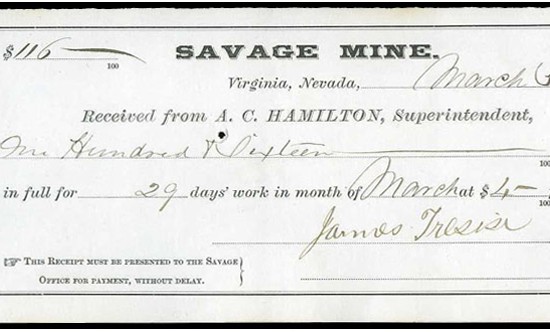 $116 — 100 SAVAGE MINE.
Virginia, Nevada, March
Received from A. C. HAMILTON, Superintendent,
One Hundred & Sixteen 100
in full for 29 days' work in month of March at $4 — 100
James Tresise
☞ THIS RECEIPT MUST BE PRESENTED TO THE SAVAGE
OFFICE FOR PAYMENT, WITHOUT DELAY.